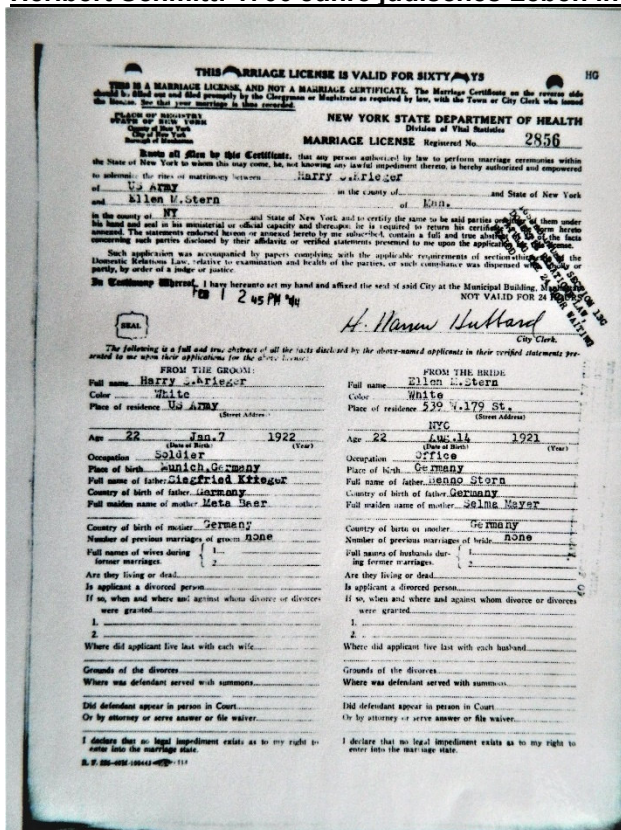 THIS MARRIAGE LICENSE IS VALID FOR SIXTY DAYS
HG
THIS IS A MARRIAGE LICENSE, AND NOT A MARRIAGE CERTIFICATE. The Marriage Certificate on the reverse side
should be filled out and filed promptly by the Clergyman or Magistrate as required by law, with the Town or City Clerk who issued
the license. See that your marriage is thus recorded.
PLACE OF REGISTRY
STATE OF NEW YORK
County of New York
City of New York
Borough of Manhattan
NEW YORK STATE DEPARTMENT OF HEALTH
Division of Vital Statistics
MARRIAGE LICENSE Registered No. 2856
Know all Men by this Certificate, that any person authorized by law to perform marriage ceremonies within
the State of New York to whom this may come, he, not knowing any lawful impediment thereto, is hereby authorized and empowered
to solemnize the rites of matrimony between Harry S.Krieger
of US Army in the county of and State of New York
and Ellen M.Stern of Man.
in the county of NY and State of New York and to certify the same to be said parties or of them under
his hand and seal in his ministerial or official capacity and thereupon he is required to return his certificate form hereto
annexed. The statements endorsed hereon or annexed hereto by me subscribed, contain a full and true abstract of the facts
concerning such parties disclosed by their affidavits or verified statements presented to me upon the application license.
Such application was accompanied by papers complying with the applicable requirements of section thirteen of the
Domestic Relations Law, relative to examination and health of the parties, or such compliance was dispensed with or
partly, by order of a judge or justice.
In Testimony Whereof, I have hereunto set my hand and affixed the seal of said City at the Municipal Building,
NOT VALID FOR 24 HOURS
FEB 1 2 45 PM '44
SEAL
H. Warren Hubbard
City Clerk.
The following is a full and true abstract of all the facts disclosed by the above-named applicants in their verified statements pre-
sented to me upon their applications for the above license:
FROM THE GROOM:
Full name Harry S.Krieger
Color White
Place of residence US Army
(Street Address)
Age 22 Jan.7 1922
(Date of Birth) (Year)
Occupation Soldier
Place of birth Munich,Germany
Full name of father Siegfried Krieger
Country of birth of father Germany
Full maiden name of mother Meta Baer
Country of birth of mother Germany
Number of previous marriages of groom none
Full names of wives during
former marriages.
1.
2.
Are they living or dead
Is applicant a divorced person
If so, when and where and against whom divorce or divorces
were granted
1.
2.
Where did applicant live last with each wife
Grounds of the divorces
Where was defendant served with summons
Did defendant appear in person in Court
Or by attorney or serve answer or file waiver
I declare that no legal impediment exists as to my right to
enter into the marriage state.
FROM THE BRIDE
Full name Ellen M.Stern
Color White
Place of residence 539 W.179 St.
(Street Address)
NYC
Age 22 Aug.14 1921
(Date of Birth) (Year)
Occupation Office
Place of birth Germany
Full name of father Benno Stern
Country of birth of father Germany
Full maiden name of mother Selma Mayer
Country of birth of mother Germany
Number of previous marriages of bride none
Full names of husbands dur-
ing former marriages.
1.
2.
Are they living or dead
Is applicant a divorced person
If so, when and where and against whom divorce or divorces
were granted
1.
2.
Where did applicant live last with each husband
Grounds of the divorces
Where was defendant served with summons
Did defendant appear in person in Court
Or by attorney or serve answer or file waiver
I declare that no legal impediment exists as to my right to
enter into the marriage state.